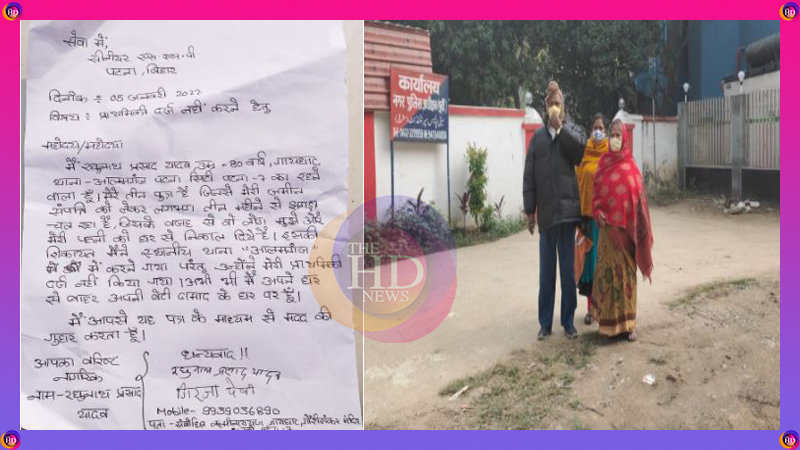 सेवा में,
सीनीयर एस० एस० पी
पटना, बिहार
दिनाँक : 05 जनवरी 2022
विषय : प्राथमिकी दर्ज नहीं करने हेतु
महोदय/महोदया
मैं रघुनाथ प्रसाद यादव, उम्र - 80 वर्ष, गायघाट
थाना - आलमगंज पटना सिटी पटना-7 का रहने
वाला हूँ। मेरे तीन पुत्र हैं जिनसे मेरी जमीन
संपत्ति को लेकर लगभग तीन महीने से झगड़ा
चल रहा है, जिसके वजह से वो लोग मुझे और
मेरी पत्नी को घर से निकाल दिये हैं। इसकी
शिकायत मैंने स्थानीय थाना "आलमगंज"
में करने गया परंतु उन्होंने मेरी प्राथमिकी
दर्ज नहीं किया गया। अभी भी मैं अपने घर
से बाहर अपनी बेटी दामाद के घर पर हूँ।
मैं आपसे यह पत्र के माध्यम से मदद की
गुहार करता हूँ।
आपका वरिष्ट
नागरिक
नाम - रघुनाथ प्रसाद
यादव
धन्यवाद !!
रघुनाथ प्रसाद यादव
गिरजा देवी
Mobile - 9939036890
कार्यालय
नगर पुलिस अधीक्षक
THE
HD
NEWS
HD
HD
HD
HD